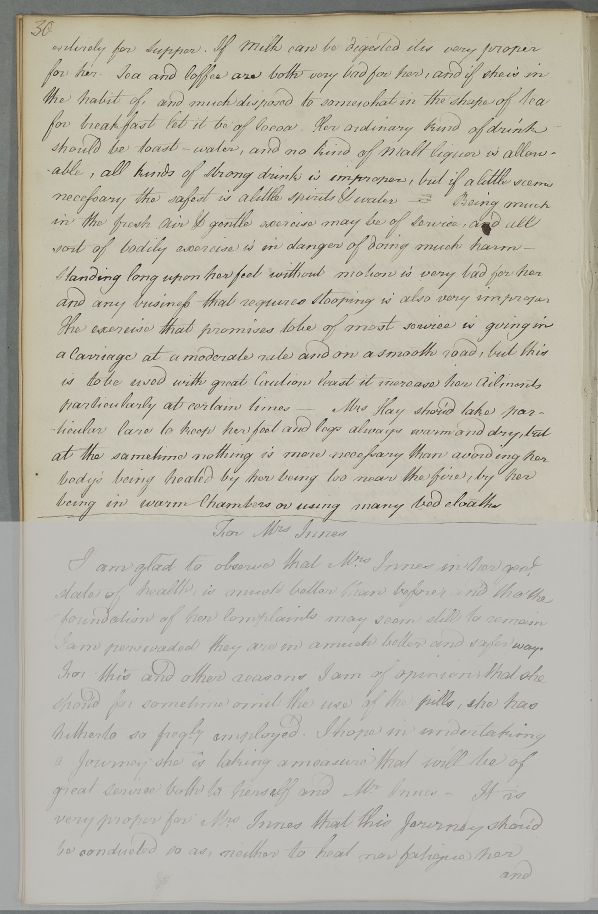 30
entirely for Supper. If Milk can be digested itis very proper
for her. Tea and Coffee are both very bad for her, and if she is in
the habit of, and much disposed to somewhat in the shape of Tea
for breakfast let it be of Cocoa. Her ordinary kind of drink
should be toast-water, and no kind of Malt liquor is allow-
-able, all kinds of Strong drink is improper, but if a little seems
necessary the safest is a little spirits & water = Being much
in the fresh Air & gentle exercise may be of Service, and all
sort of bodily exercise is in danger of doing much harm -
Standing long upon her feet without motion is very bad for her
And any business that requires stooping is also very improper
The exercise that promises to be of most service is going in
a Carriage at a moderate rate and on a smooth road, but this
is to be used with great Caution least it increase her Ailments
particularly at certain times — Mrs Hay should take par-
-ticular Care to keep her feet and legs always warm and dry, but
at the sametime nothing is more necessary than avoiding her
body's being heated by her being too near the fire, by her
being in warm Chambers or using many bed cloaths
For Mrs Innes
I am glad to observe that Mrs Innes in her
state of health, is much better than before, and tho the
foundation of her Complaints may seem still to remain
I am perswaded they are in a much better and safer way.
For this and other reasons I am of opinion that she
shou'd for sometime omit the use of the pills, she has
hitherto so freqly employed. I hope in undertaking
a Journey she is taking a measure that will be of
great Service both to herself and Mr Innes - It is
very proper for Mrs Innes that this Journey shou'd
be conducted so as, neither to heat nor fatigue her
and